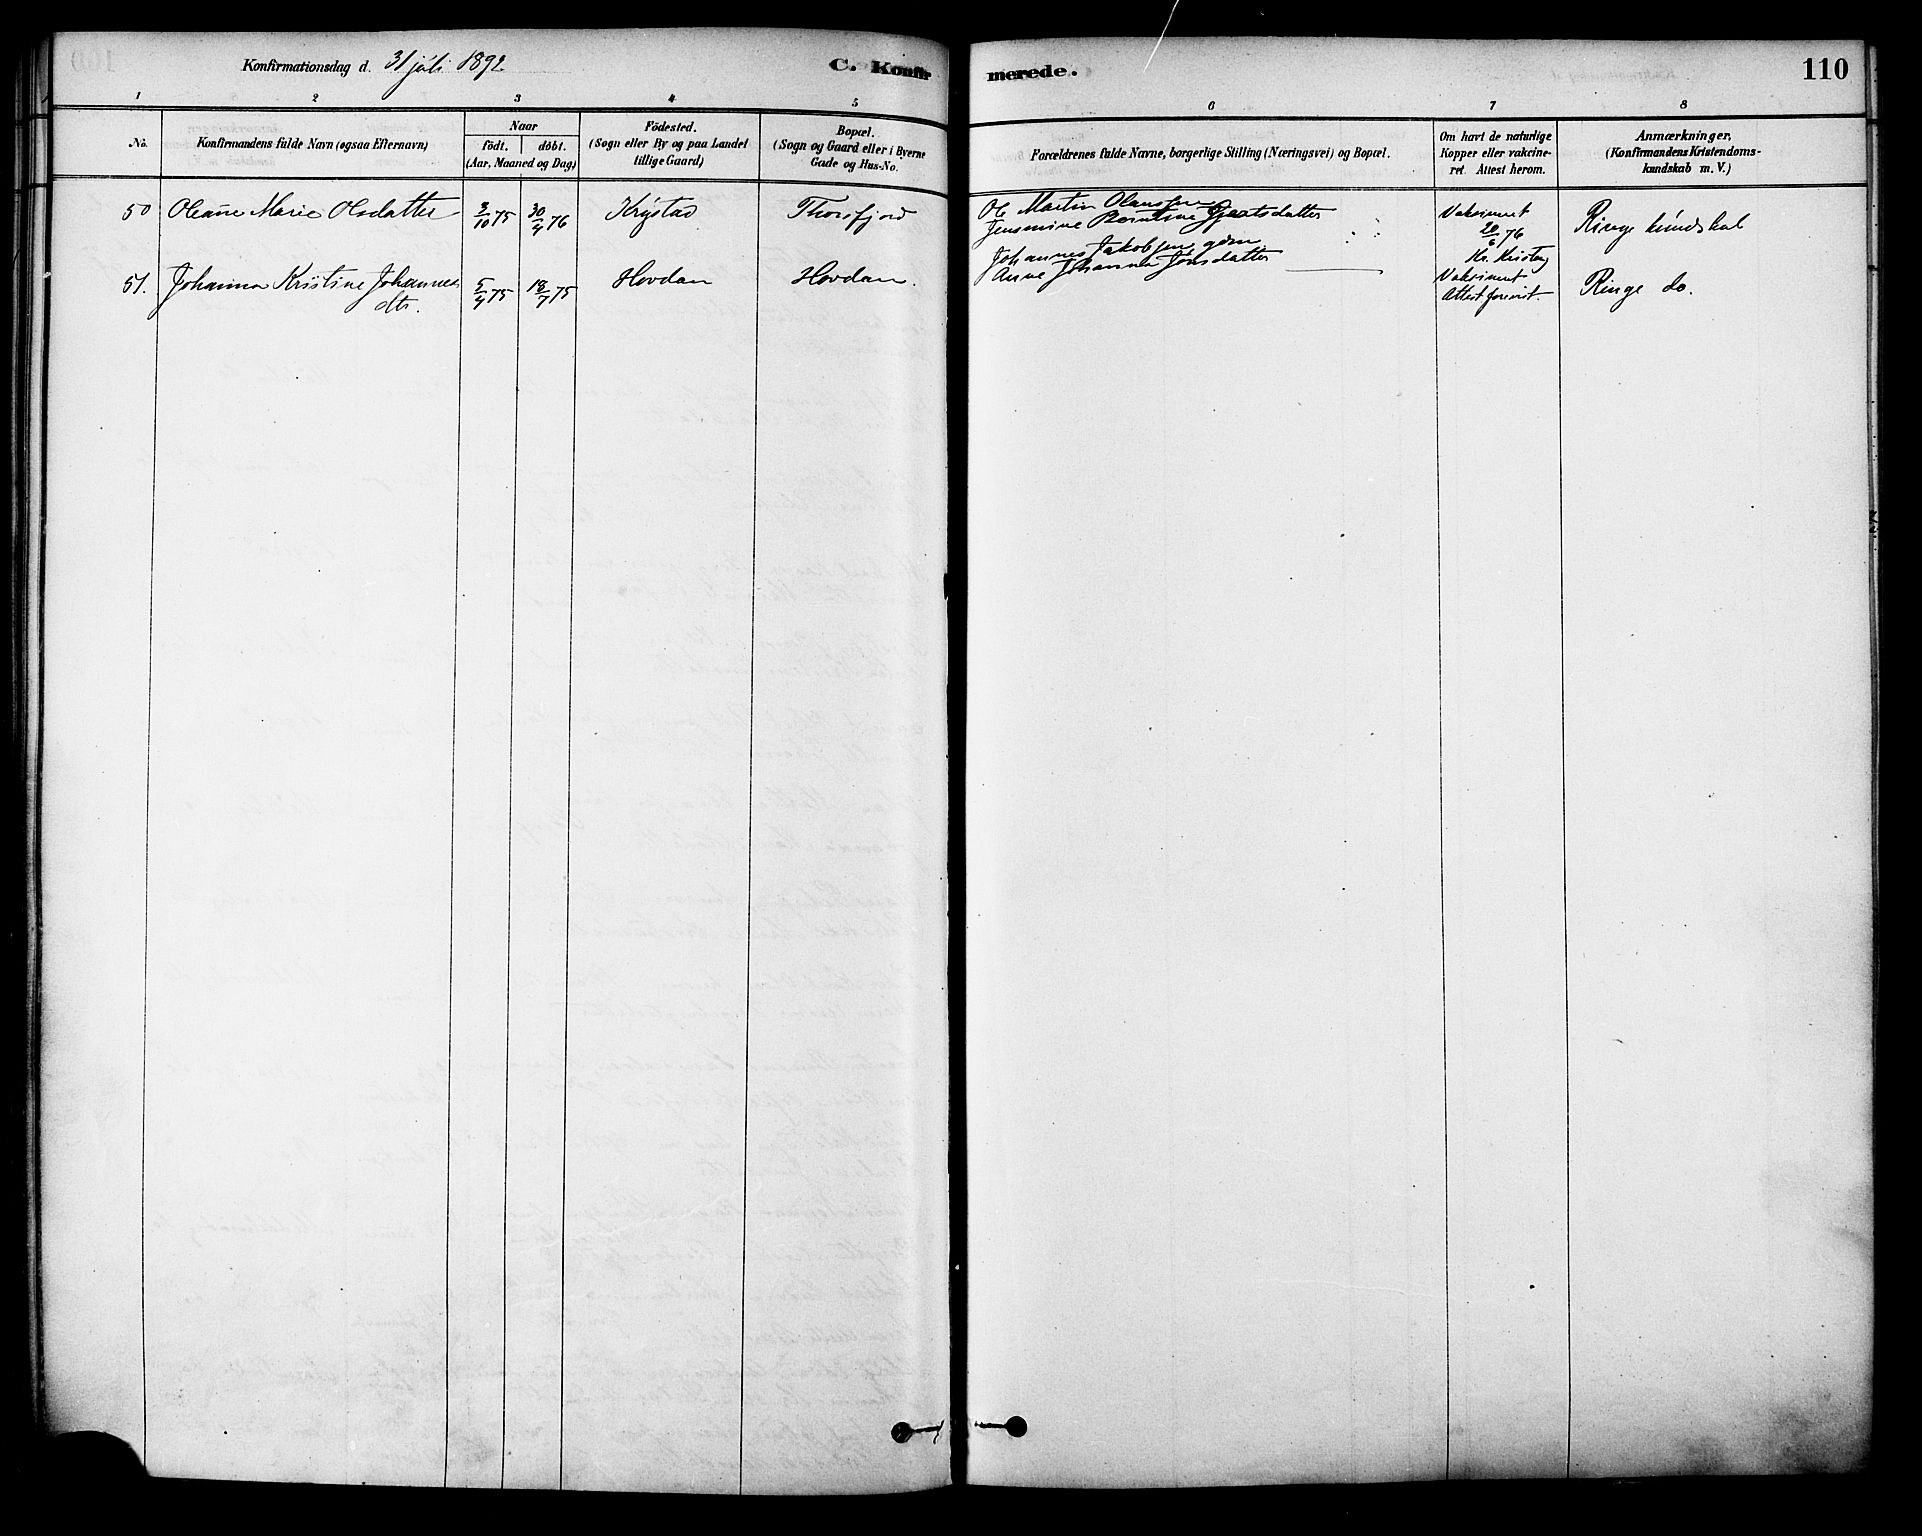 Konfirmationsdag d. 31 juli 1892
C. Konfirmerede.
110
1 2 3 4 5 6 7 8
No.
Konfirmandens fulde Navn (ogsaa Efternavn)
Naar
födt. döbt.
(Aar, Maaned og Dag)
Födested.
(Sogn eller By og paa Landet
tillige Gaard)
Bopæl.
(Sogn og Gaard eller i Byerne
Gade og Hus-No.
Forældrenes fulde Navne, borgerlige Stilling (Næringsvei) og Bopæl.
Om havt de naturlige
Kopper eller vakcine-
ret. Attest herom.
Anmærkninger,
(Konfirmandens Kristendoms-
kundskab m. V.)
50 Oleane Marie Olsdatter 3/10 75 30/4 76 Krystad Thorsfjord
Ole Martin Olaussen
Jensmine Berntine
Vaksineret
20/6 76
Kr.
Ringe kundskab
51. Johanna Kristine Johannes
dtr.
5/4 75 18/7 75 Hovdan Hovdan.
Johannes Jakobsen gdm
Anne Johanna Jonsdatter
Vaksineret
Attest forevist.
Ringe do.